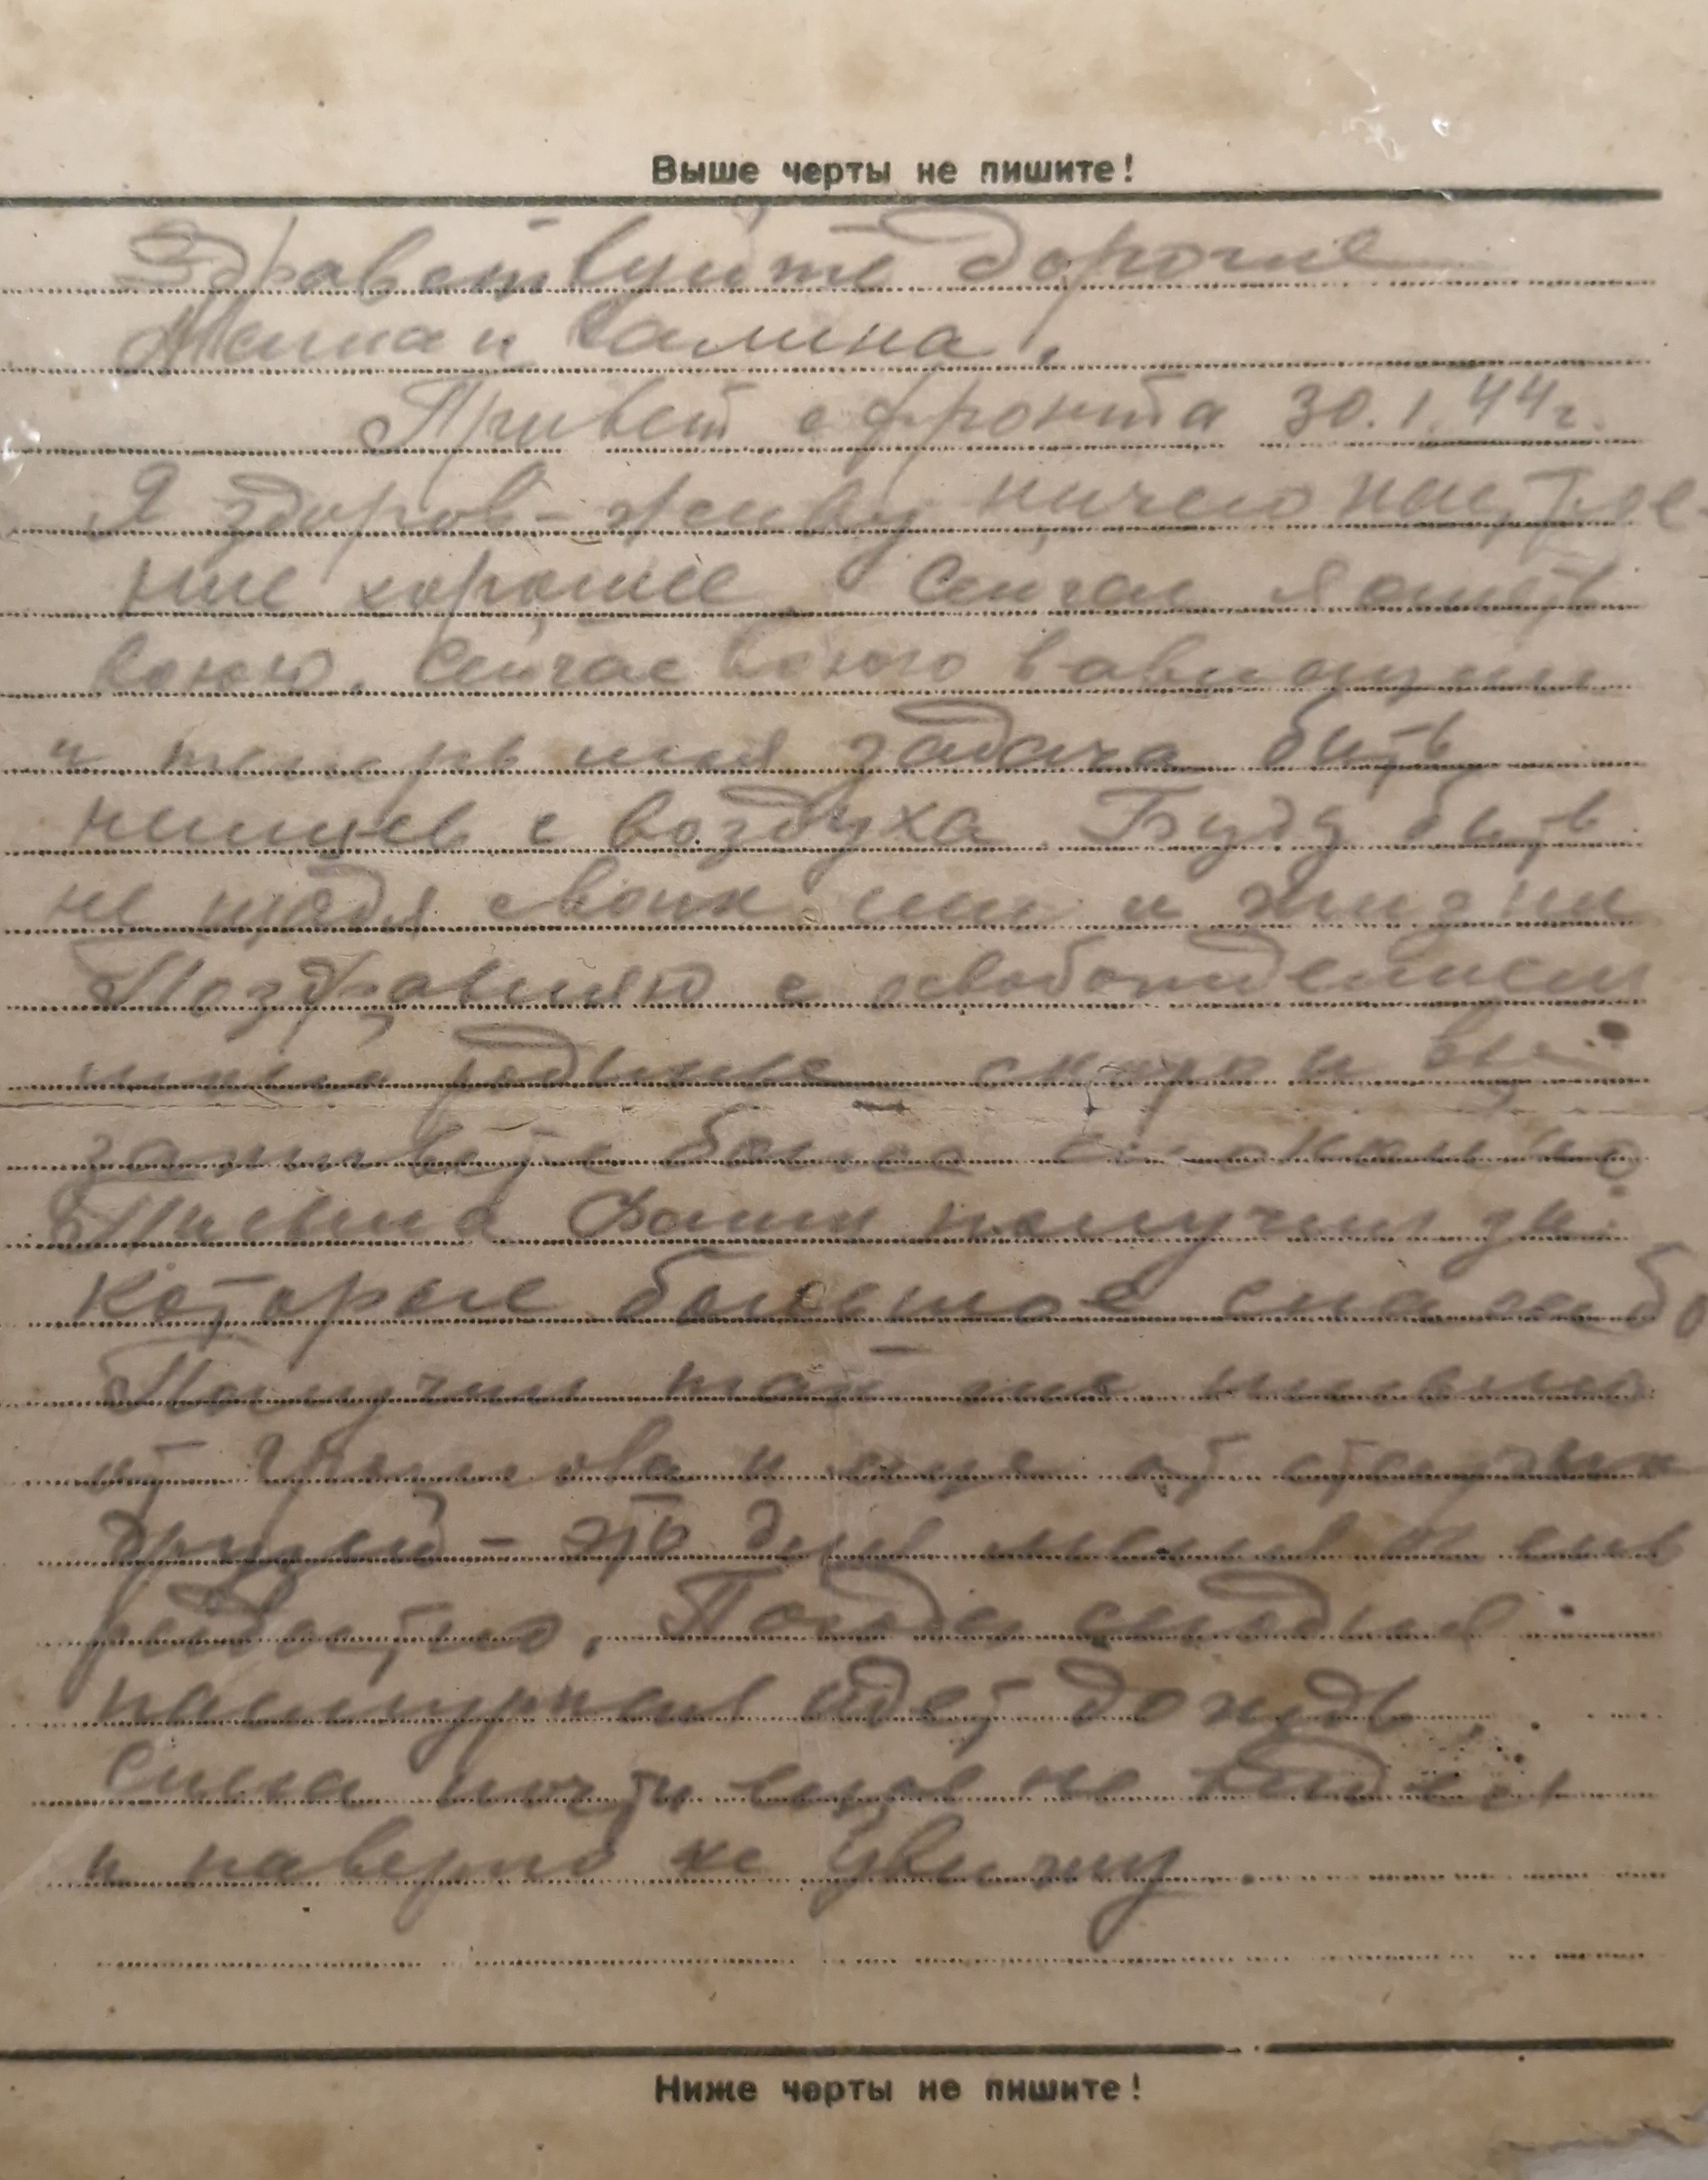 Выше черты не пишите!
Здравствуйте дорогие
и Галина.
Привет с фронта 30.1.44 г.
Я здоров - живу ничего настрое-
ние хорошее. Сейчас я опять
воюю. Сейчас воюю в авиации
и теперь моя задача бить
немцев с воздуха. Буду бить
не щадя своих сил и жизни
Поздравляю с освобождением
родины скоро и вы
заживёте более спокойно
Письма Ваши получил за
которые большое спасибо
Получил так же письмо
от и еще от старых
друзей - это для меня очень
радостно. Погода сегодня
пасмурная идет дождь.
почти снова не видел
и наверно не увижу.
Ниже черты не пишите!